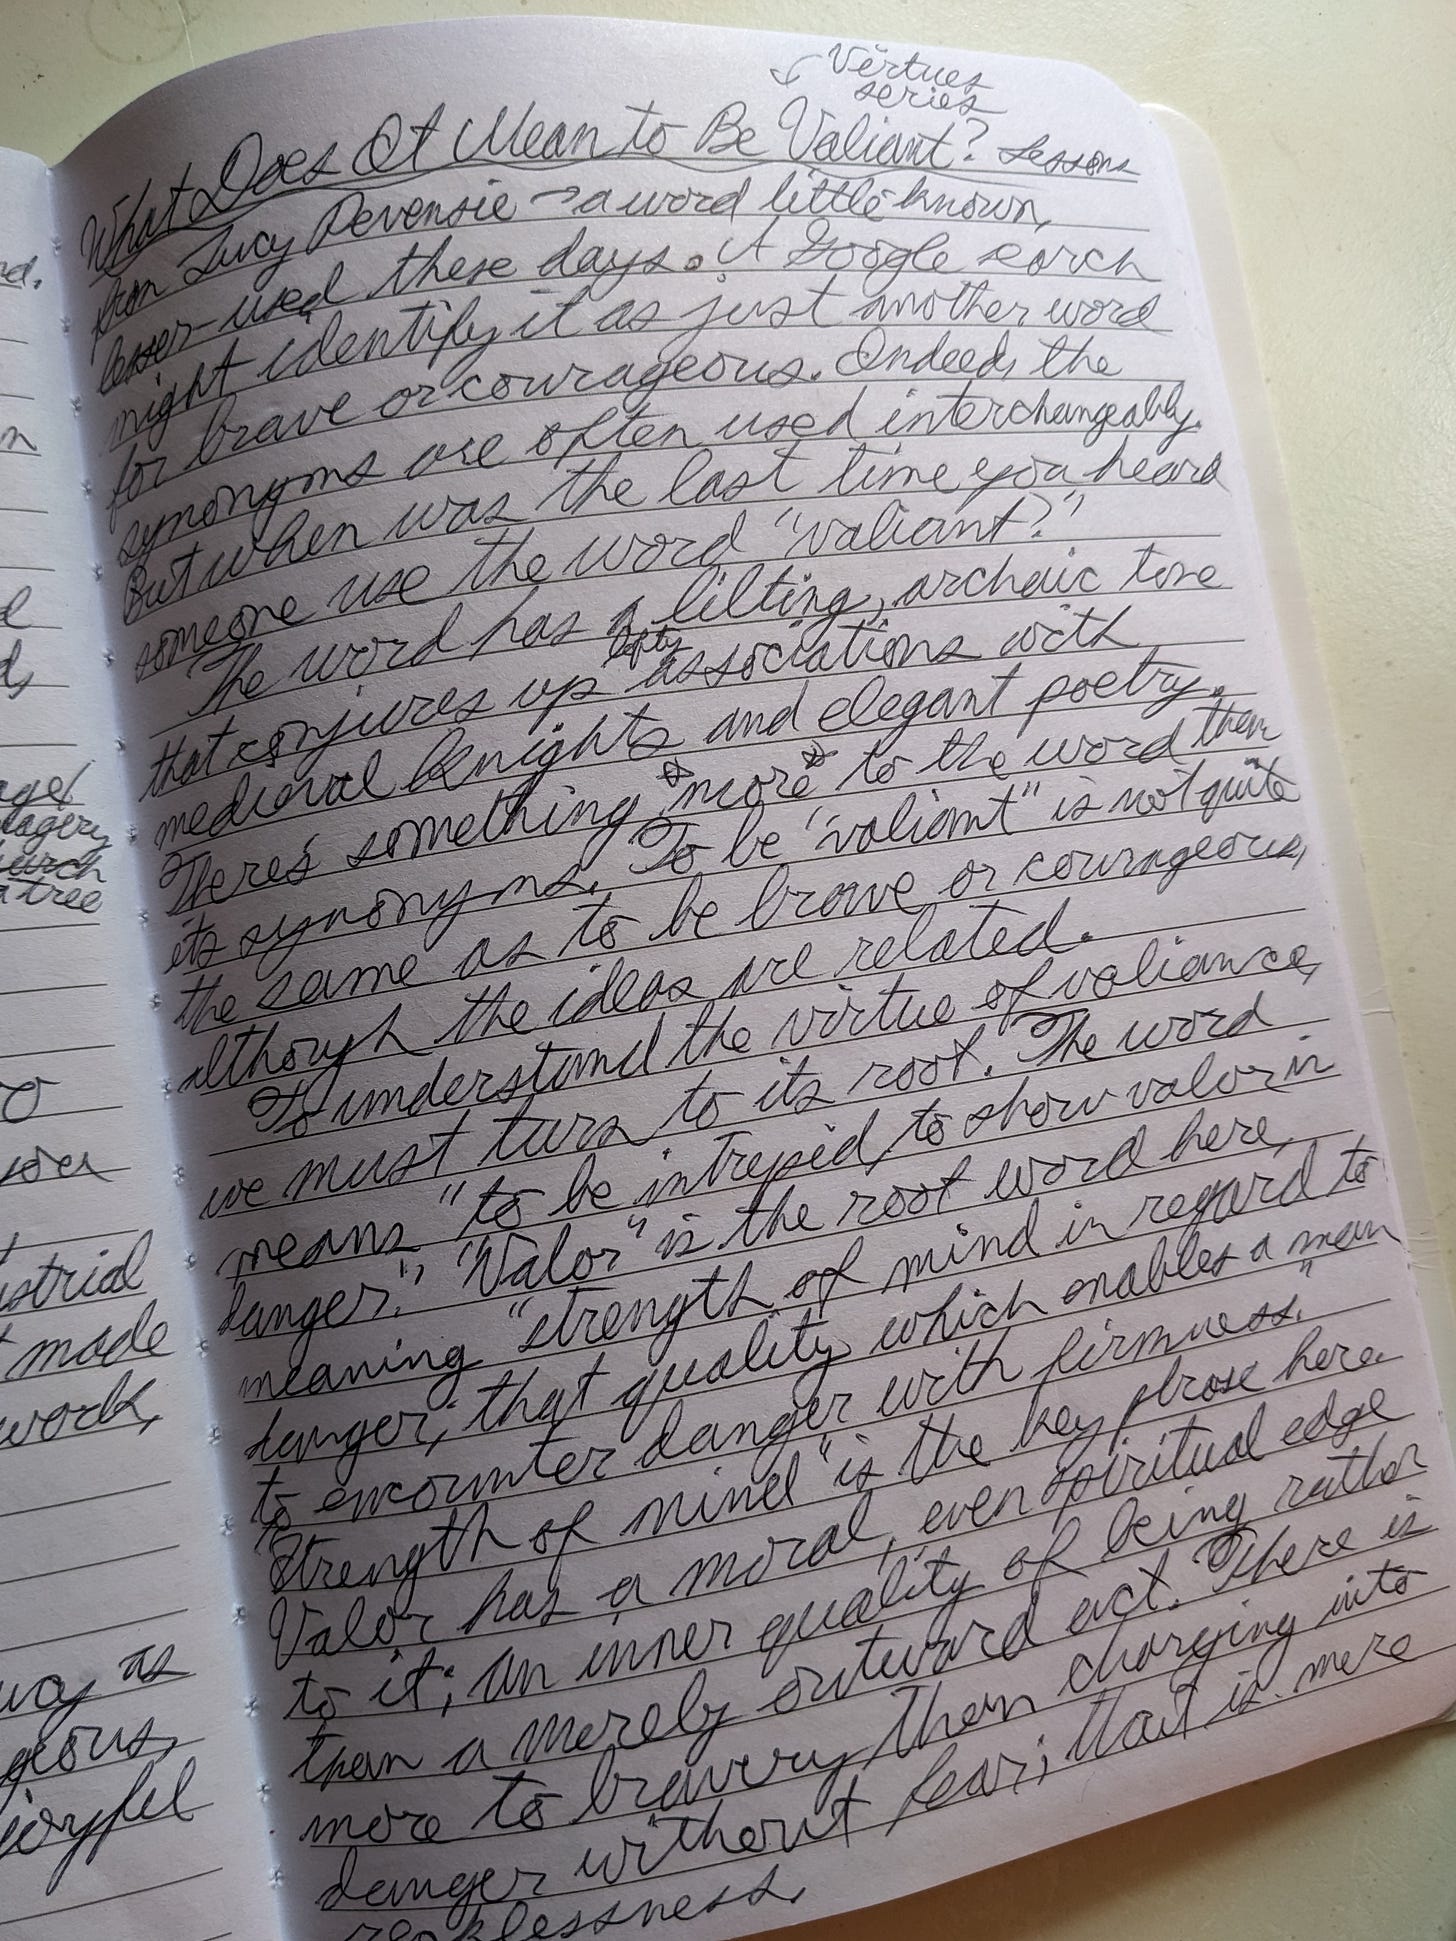 nd,
n
l
d,
ager
magery
church
a tree
o
you
ustrial
t made
work,
ucy as
geous,
joyful
Virtues
series
What Does It Mean to Be Valiant? Lessons
from Lucy Pevensie → a word little known,
lesser-used these days. A Google search
might identify it as just another word
for brave or courageous. Indeed, the
synonyms are often used interchangeably.
But when was the last time you heard
someone use the word "valiant?"
The word has a lilting, archaic tone
that conjures up lofty associations with
medieval knights and elegant poetry.
There's something *more* to the word than
its synonyms. To be "valiant" is not quite
the same as to be brave or courageous,
although the ideas are related.
To understand the virtue of valiance,
we must turn to its root. The word
means "to be intrepid, to show valor in
danger." "Valor" is the root word here,
meaning "strength of mind in regard to
danger; that quality which enables a man
to encounter danger with firmness."
"Strength of mind" is the key phrase here.
Valor has a moral, even spiritual edge
to it; an inner quality of being rather
than a merely outward act. There is
more to bravery than charging into
danger without fear; that is mere
recklessness.